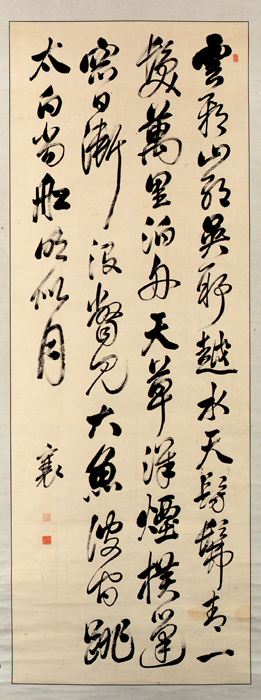 雲耶山耶吳耶越水天髣髴青一
髮萬里泊舟天草洋煙橫篷
窓日漸没瞥見大魚波間跳
太白當船明似月
襄